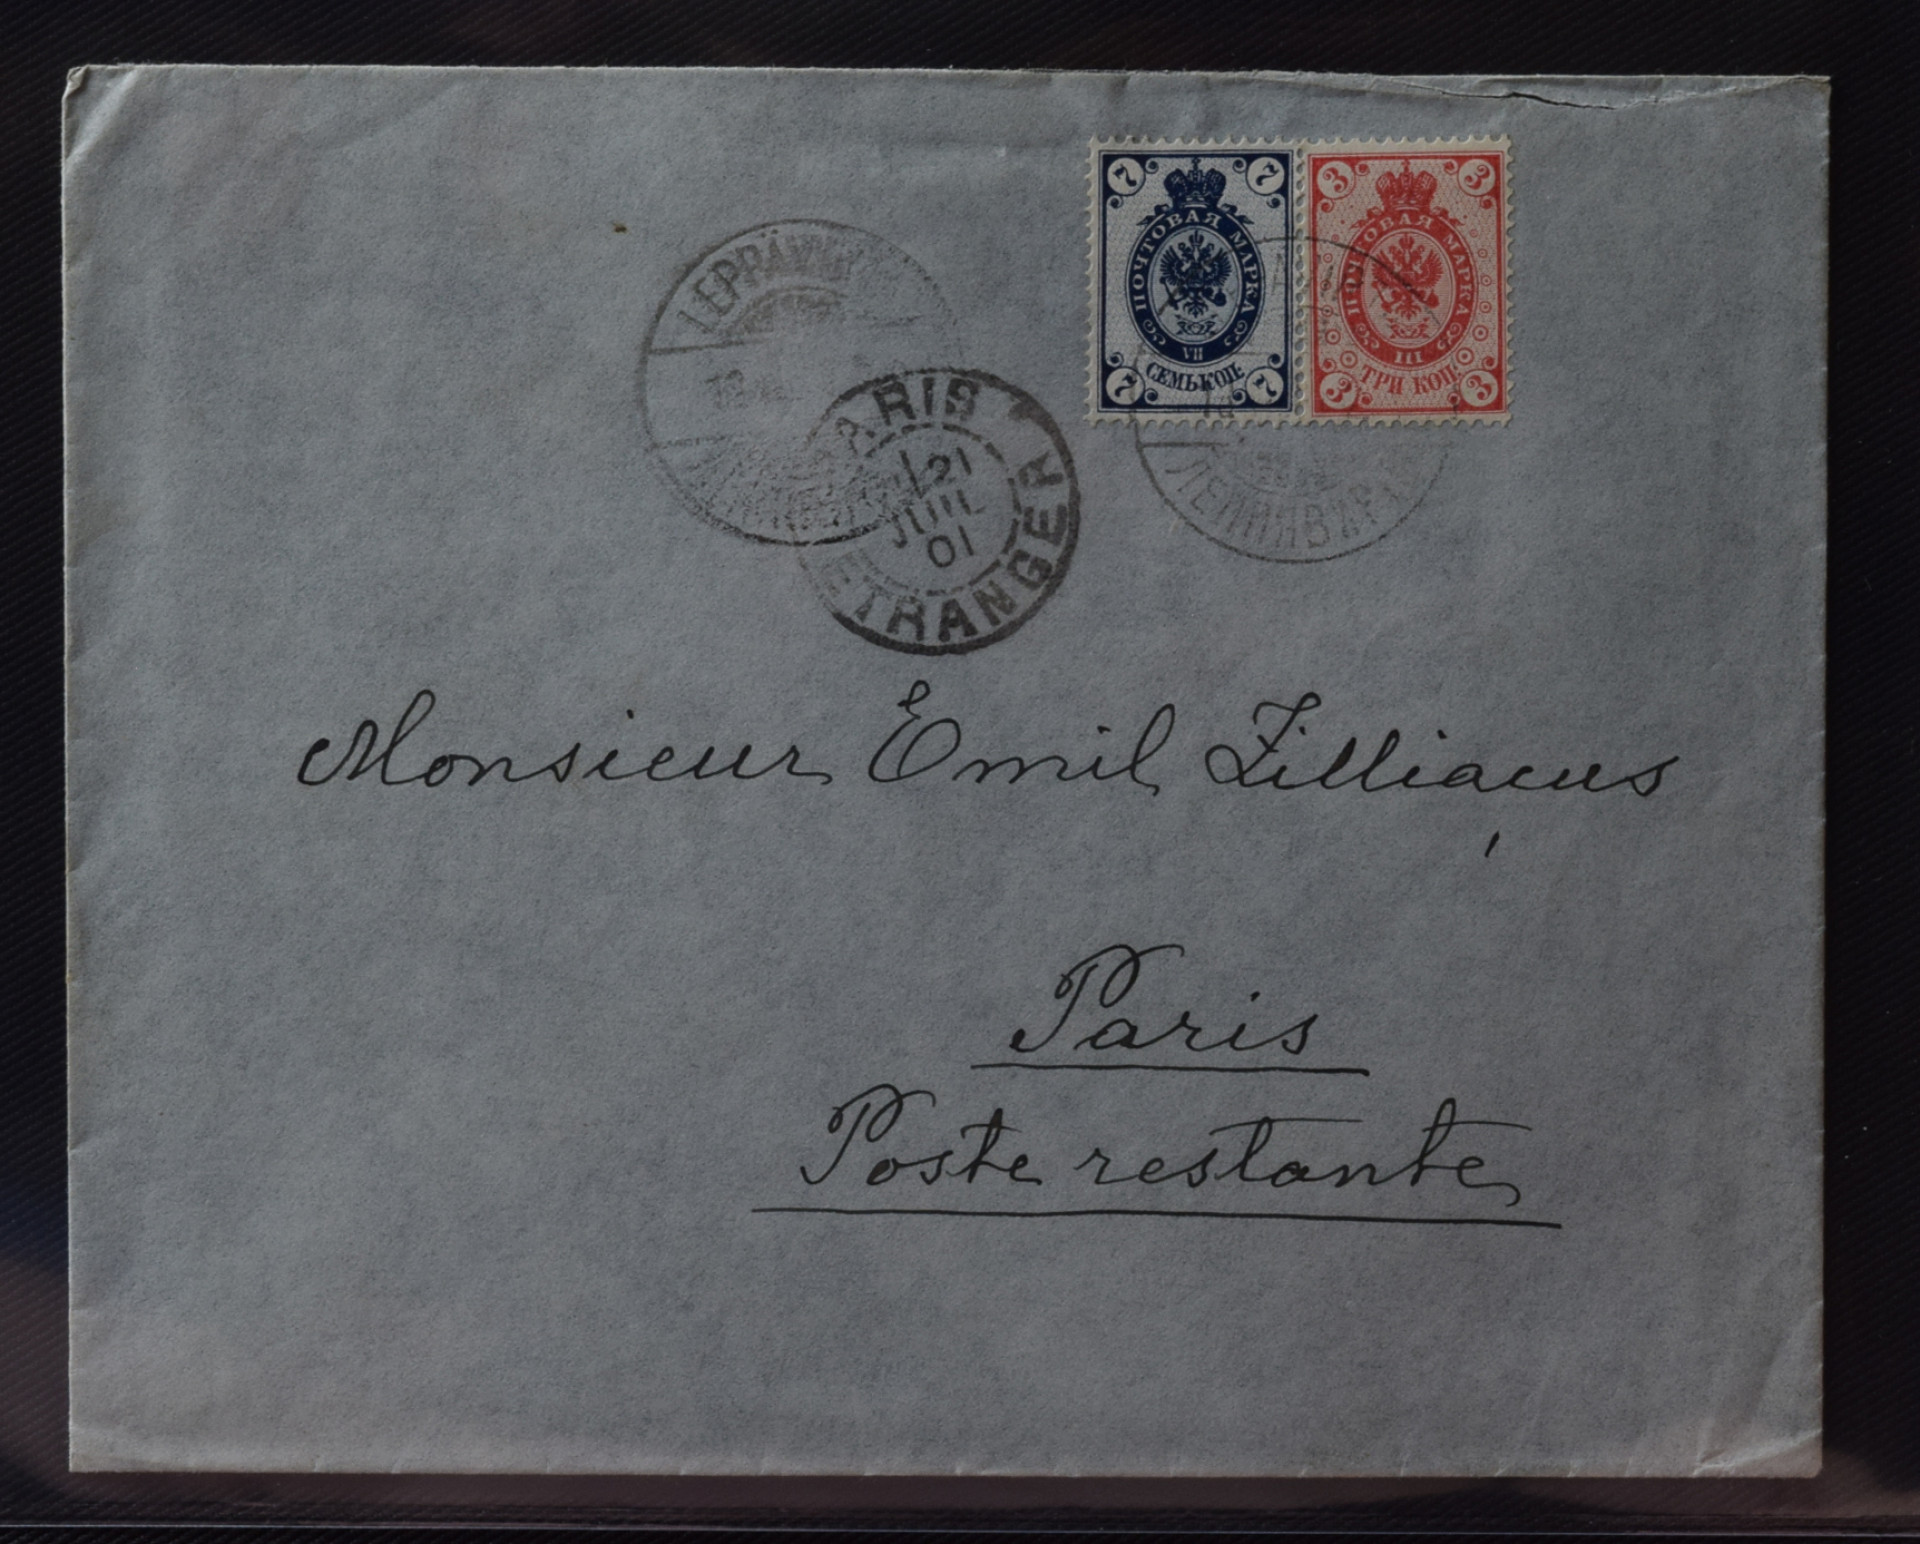 7 7 3 3
ПОЧТОВАЯ МАРКА ПОЧТОВАЯ МАРКА
VII III
СЕМЬ КОП. ТРИ КОП.
7 7 3 3
LEPPÄVIRTA
PARIS
21
JUIL
01
ETRANGER
Monsieur Emil Zilliacus
Paris
Poste restante